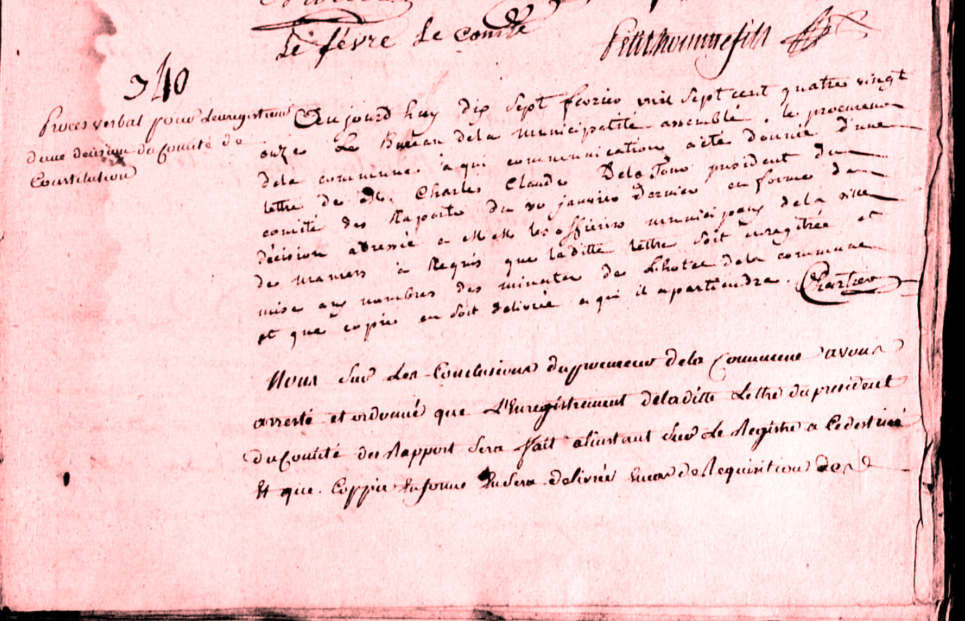 Le févre Le comte Petithommefils
340
Procès verbal pour Lenregistrement
dune décision du Comité de
Constitution
Aujourd huy dix Sept février mil Sept cent quatre vingt
onze Le Bureau dela municipalité assemblé, le procureur
dela commune à qui communication a été donnée d'une
lettre de M. Charles Claude Dela Tour président du
comité des Raports du 20 janvier dernier en forme de
décision adressée a M M les officiers municipaux dela ville
de mamers à Requis que laditte lettre soit enregitrée et
mise aux nombres des minutes de Lhotel dela commune
et que copie en soit delivrée a qui il apartiendra. Chartier
Nous Sur Les Conclusions duprocureur dela Commune avons
arresté et ordonné que L'Enregistrement deladitte Lettre du président
du Comité des Rapport Sera fait alinstant Sur Le Registre a Cedestiné
Et que Coppie En forme En Sera delivrée Encas de Requisition